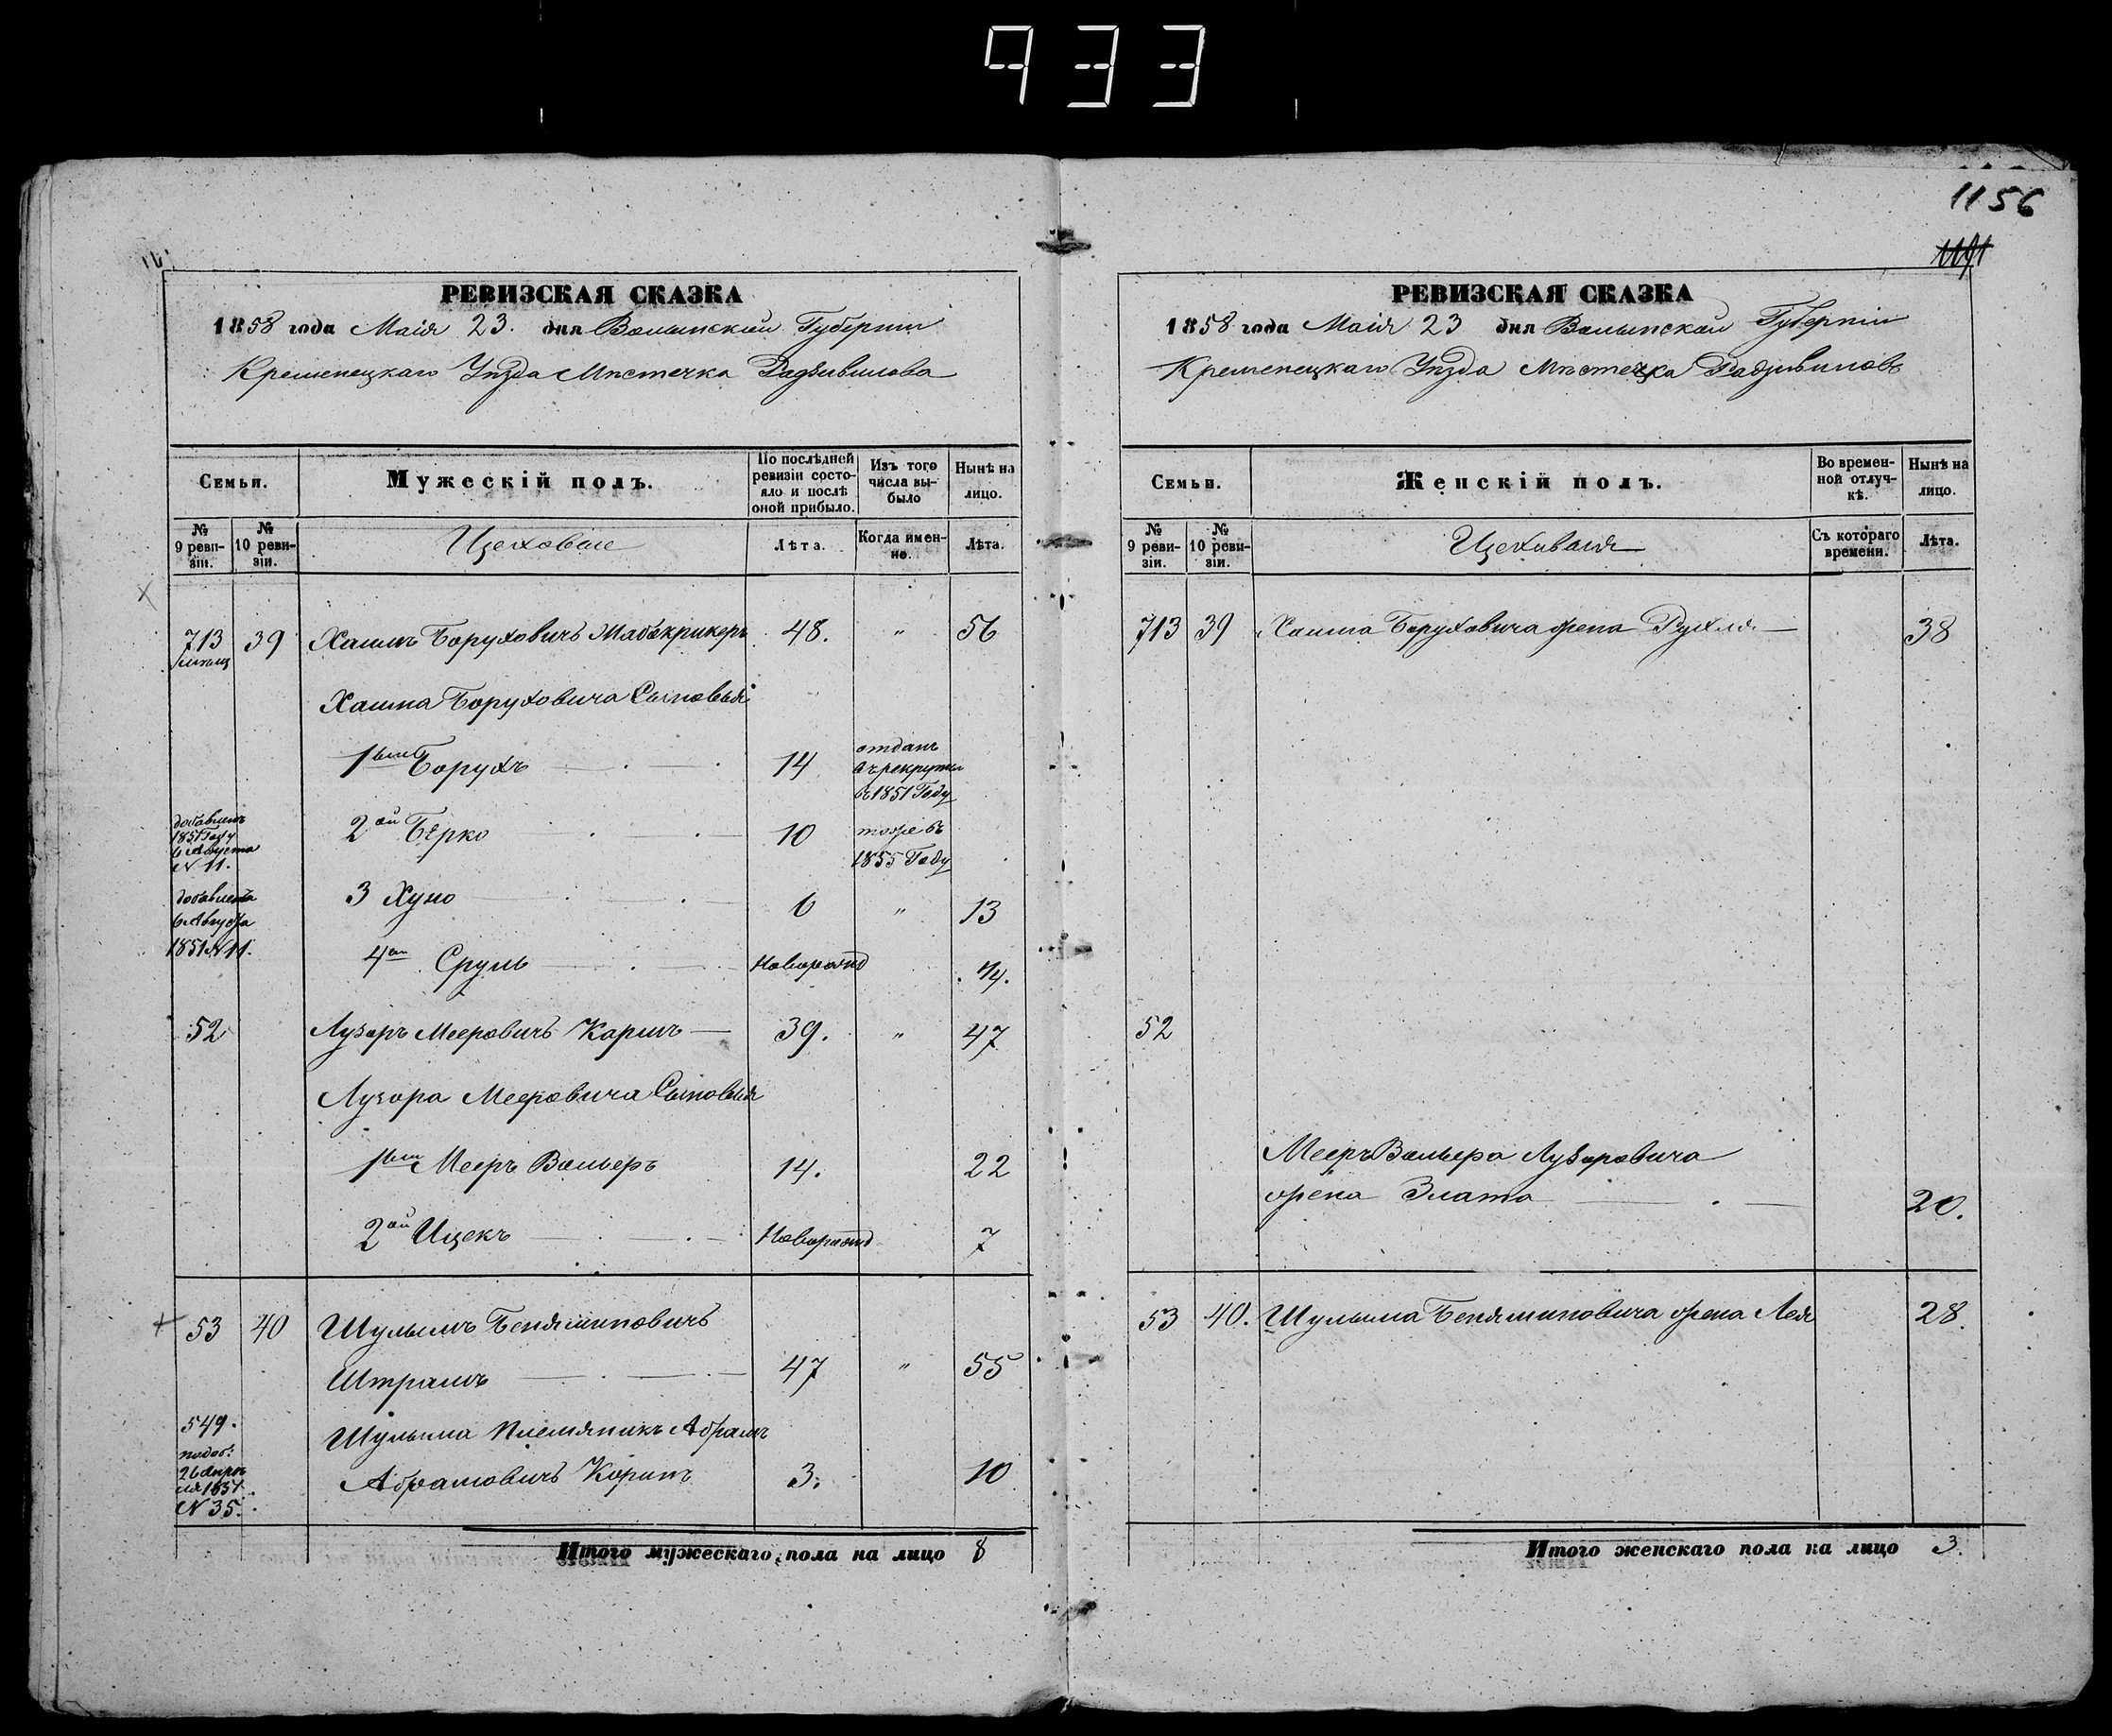 933
РЕВИЗСКАЯ СКАЗКА
1858 года Маія 23. дня Волынской Губерніи
Кременецкаго Уѣзда Мѣстечка Радзивилова
Семьи.
Мужескій полъ.
По послѣдней ревизіи состояло и послѣ оной прибыло.
Изъ того числа выбыло
Нынѣ на лицо.
№ 9 ревизіи.
№ 10 ревизіи.
Цеховые
Лѣта.
Когда именно.
Лѣта.
713 39 Хаимъ Боруховичъ 48. " 56
Хаима Боруховича Сыновья
1ый Борухъ 14 отданъ
въ рекруты
въ 1851 Году
добавленъ
1851 Году
6 Августа
№ 11.
2ой Берко 10 тоже въ
1855 Году
3 Хуно 6 " 13
6 Августа
1851 № 11.
4ый Сруль Новорожд
52 Лузоръ Мееровичъ Коринъ 39. " 47
Лузора Мееровича Сыновья
1ый Мееръ Вольеръ 14. 22
2ой Ицекъ Новорожд 7
53 40 Шулимъ Беняминовичъ
Штрамъ 47 " 55
549.
№ 35.
Шулима племяникъ Абрамъ
Абрамовичъ Коринъ 3. 10
Итого мужескаго пола на лицо 8
1156
РЕВИЗСКАЯ СКАЗКА
1858 года Маія 23 дня Волынской Губерніи
Кременецкаго Уѣзда Мѣстечка Радзивиловъ
Семьи.
Женскій полъ.
Во временной отлучкѣ.
Нынѣ на лицо.
№ 9 ревизіи.
№ 10 ревизіи.
Цеховыя
Съ котораго времени.
Лѣта.
713 39 Хаима Боруховича жена Рухля 38
52
Мееръ Вольера Лузоровича
жена Злата 20.
53 40. Шулима Беняминовича жена Лея 28.
Итого женскаго пола на лицо 3.